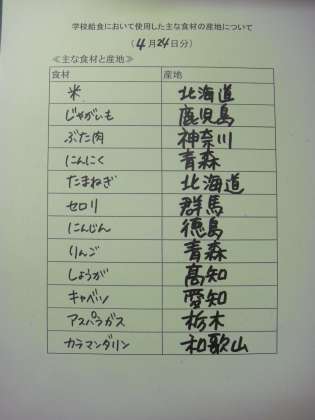 学校給食において使用した主な食材の産地について
(4月24日分)
≪主な食材と産地≫
食材 産地
米 北海道
じゃがいも 鹿児島
ぶた肉 神奈川
にんにく 青森
たまねぎ 北海道
セロリ 群馬
にんじん 徳島
りんご 青森
しょうが 高知
キャベツ 愛知
アスパラガス 栃木
カラマンダリン 和歌山